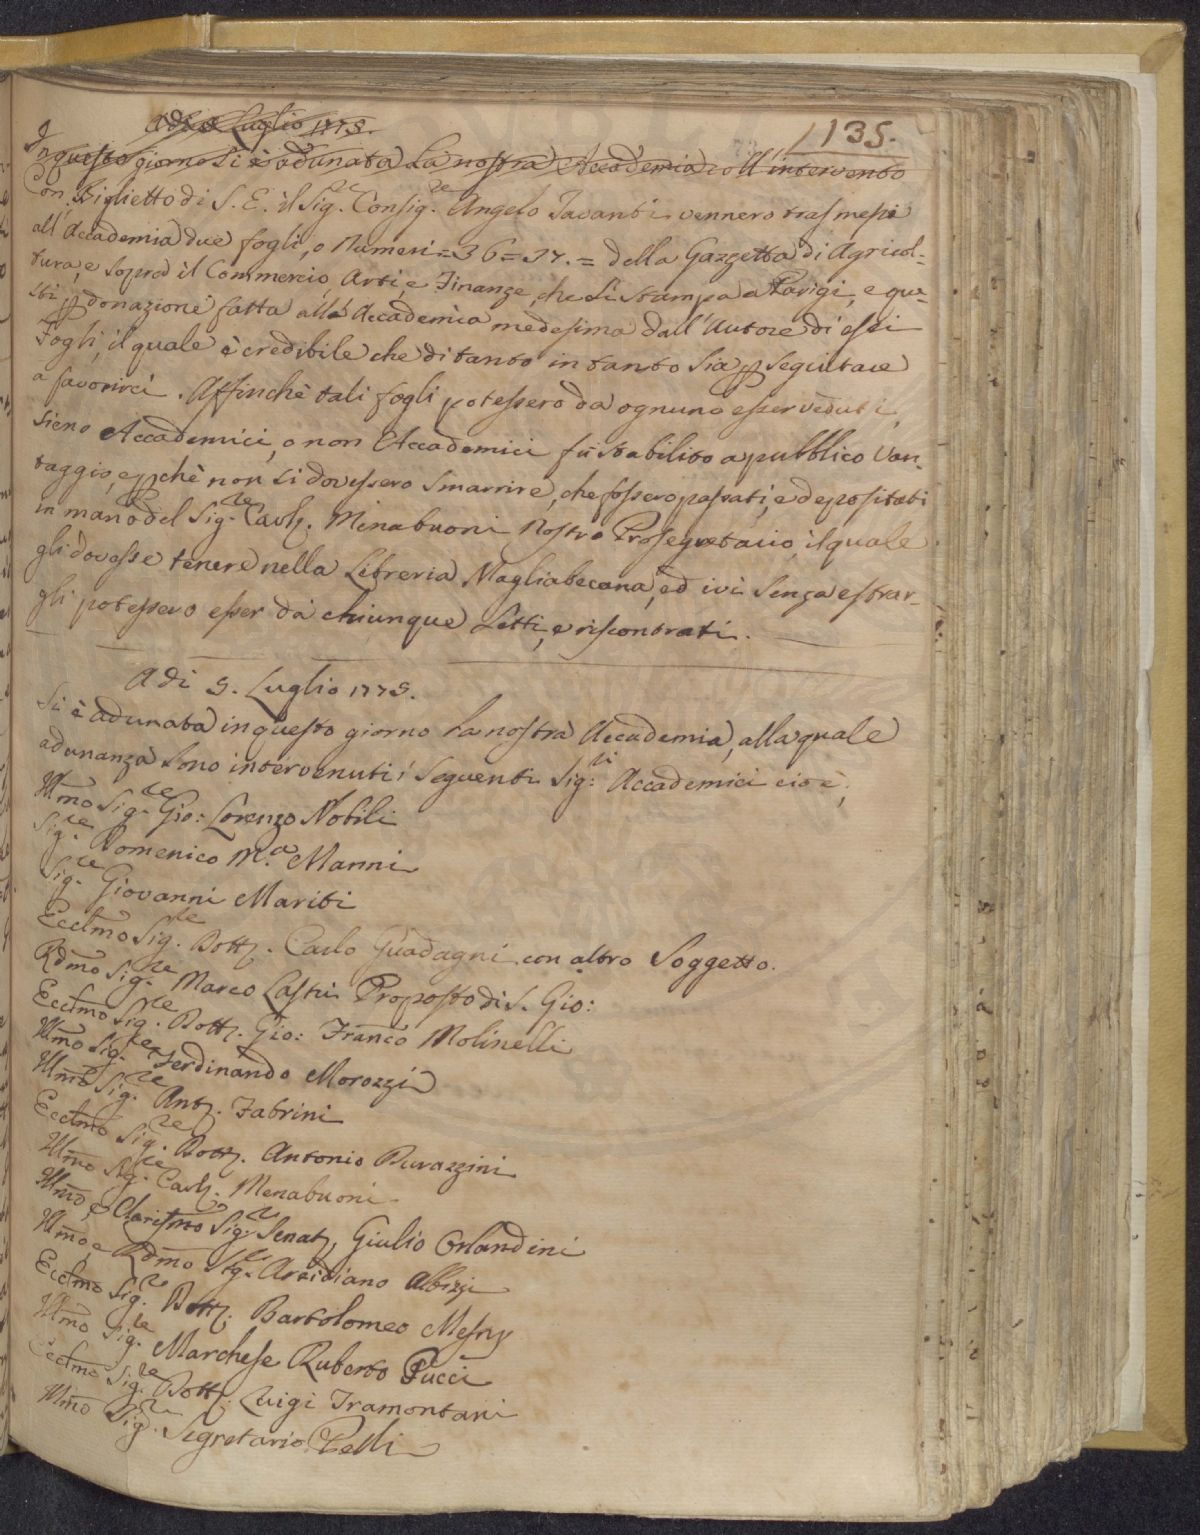 135.
Adì 5 Luglio 1775.
In questo giorno si è adunata la nostra Accademia coll'intervento
Con Biglietto di S. E. il Sig.re Consig.re Angelo Tavanti vennero trasmesse
all'Accademia due fogli, o Numeri = 36 = 37. = della Gazzetta di Agricol=
tura, e sopra il Commercio, Arti, e Finanze, che si stampa a Parigi, e que=
sti p donazione fatta all'Accademia medesima dall'Autore di essi
Fogli, il quale è credibile che di tanto in tanto sia p seguitare
a favorirci. Affinchè tali fogli potessero da ognuno esser veduti,
sieno Accademici, o non Accademici fù stabilito a pubblico van=
taggio, e pchè non si dovessero smarrire, che fossero passati, e depositati
in mano del Sig.re Carlo Menabuoni Nostro Prosegretario, il quale
gli dovesse tenere nella Libreria Magliabecana, ed ivi senza estrar=
gli potessero esser da chiunque Letti, e riscontrati.
Adì 5. Luglio 1775.
Si è adunata in questo giorno la nostra Accademia, alla quale
adunanza sono intervenuti i seguenti Sig.ri Accademici cioè,
Illmo Sig.re Gio: Lorenzo Nobili
Sig.re Domenico M.a Manni
Sig.re Giovanni Mariti
Ecclmo Sig.re Dott. Carlo Guadagni con altro Soggetto.
Rdmo Sig.re Marco Lastri Proposto di S. Gio:
Ecclmo Sig.re Dott. Gio: Franco Molinelli
Illmo Sig.re Ferdinando Morozzi
Illmo Sig.re Ant. Fabrini
Ecclmo Sig.re Dott. Antonio Durazzini
Illmo Sig.re Carl. Menabuoni
Illmo, e Clarissmo Sig.re Senat. Giulio Orlandini
Illmo, e Rdmo Sig.re Arcidiano Albizi
Ecclmo Sig.re Dott. Bartolomeo Mesny
Illmo Sig.re Marchese Ruberto Pucci
Ecclmo Sig.re Dott. Luigi Tramontani
Illmo Sig.re Segretario Pelli